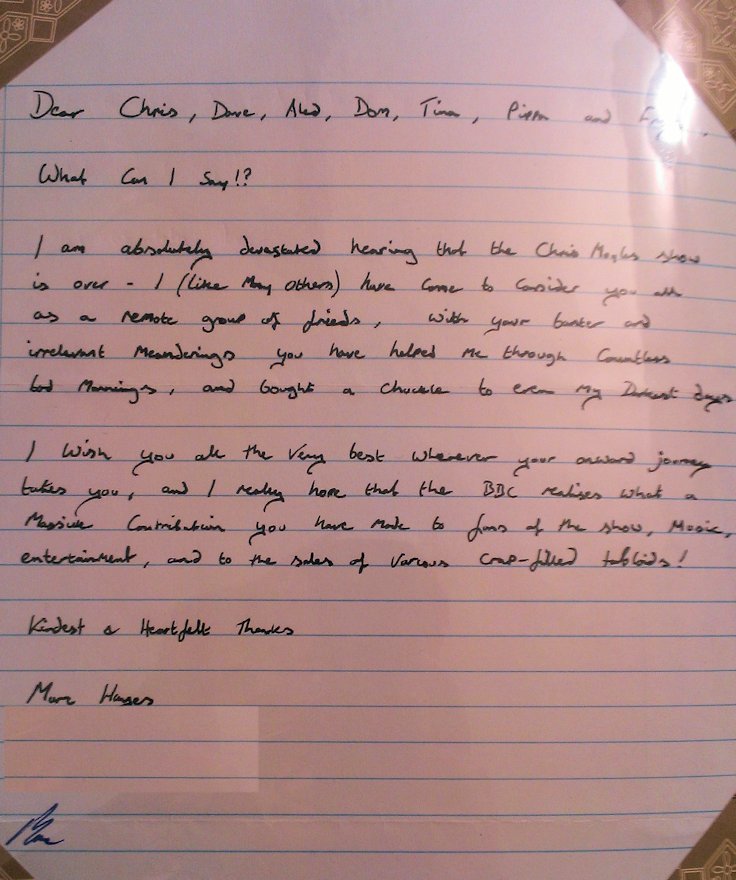 Dear Chris, Dave, Aled, Dom, Tina, Pippa and
What Can I Say!?
I am absolutely devastated hearing that the Chris Moyles show
is over - I (like Many others) have Come to Consider you all
as a remote group of frieds, with your banter and
irrelevant Meanderings you have helped Me through Countless
bad Mornings, and bought a chuckle to even My Darkest days
I Wish you all the Very best wherever your onward journey
takes you, and I really hope that the BBC realises what a
Massive Contribution you have Made to fans of the show, Music,
entertainment, and to the sales of Various crap-filled tabloids!
Kindest & Heartfelt Thanks
Marc
Marc